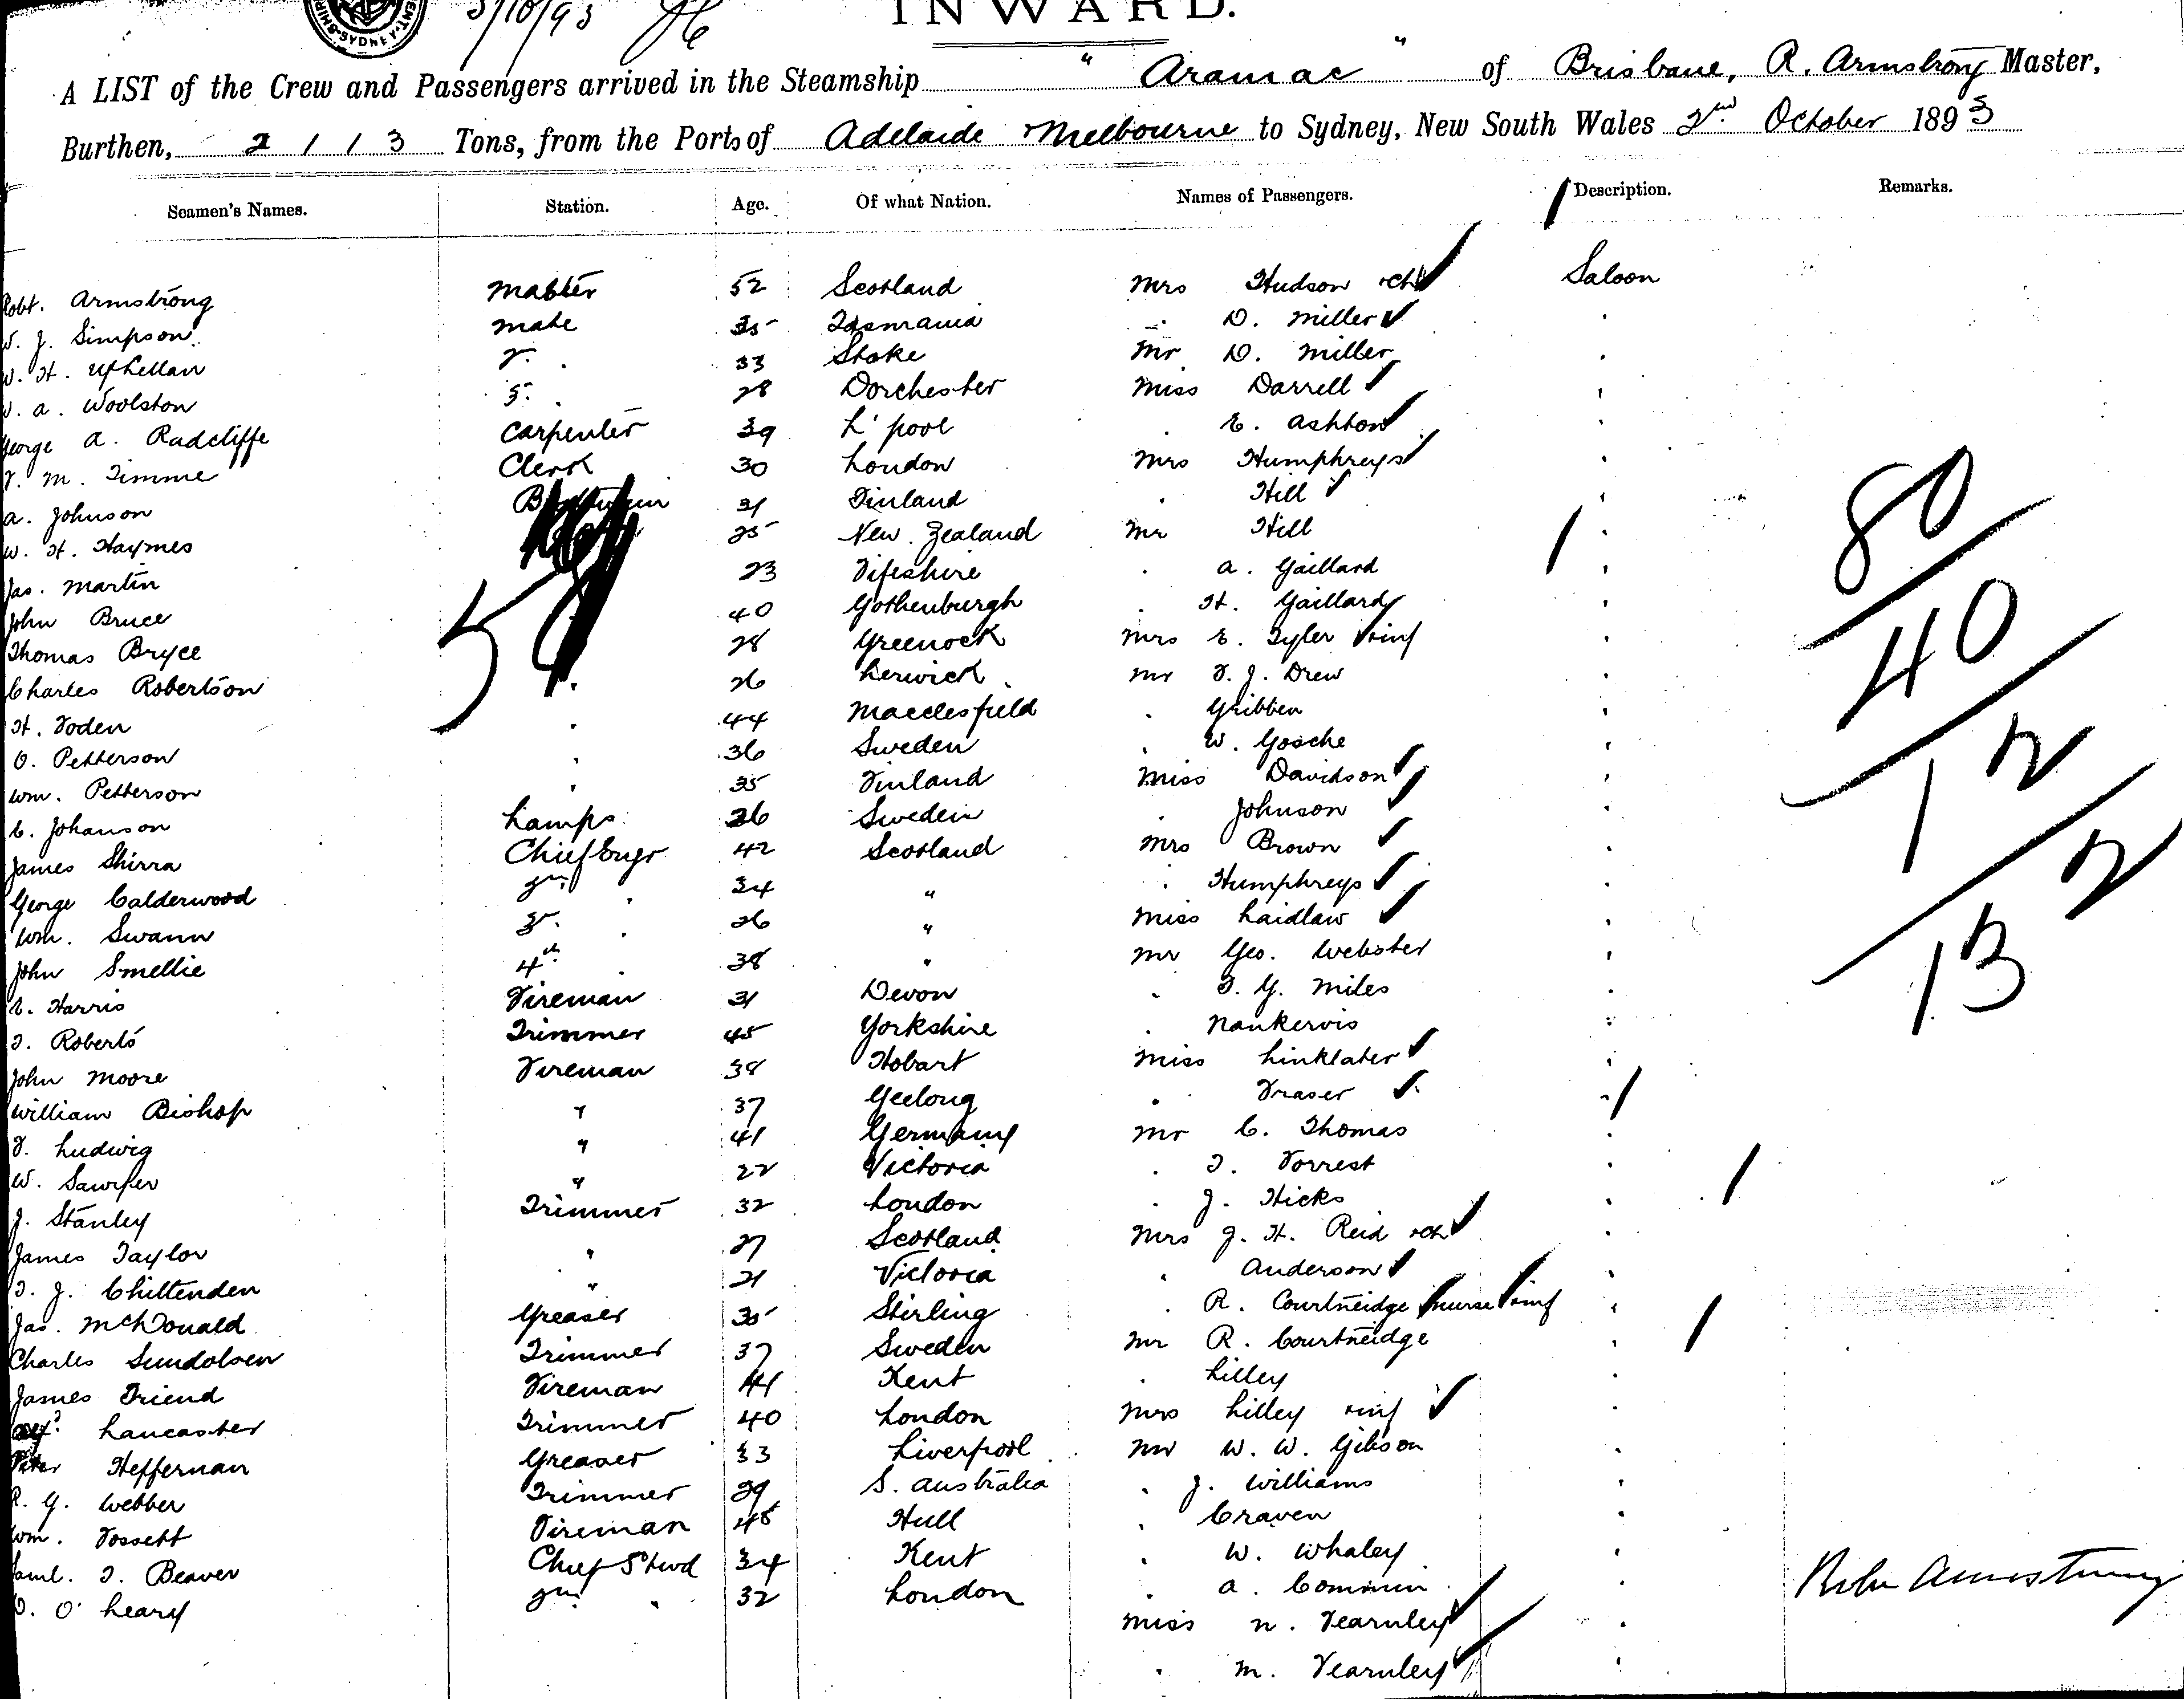 SYDNEY
3/10/93
INWARD.
A LIST of the Crew and Passengers arrived in the Steamship "Aramac" of Brisbane, R. Armstrong Master,
Burthen, 2113 Tons, from the Ports of Adelaide Melbourne to Sydney, New South Wales 2nd October 1893
Seamen's Names. Station. Age. Of what Nation. Names of Passengers. Description. Remarks.
Robt. Armstrong Master 52 Scotland Mrs Hudson + ch Saloon
J. Simpson Mate 35 Tasmania " D. Miller
W. H. 2nd " 33 Stoke Mr D. Miller
A. Woolston 3rd " 28 Dorchester Miss Darrell
George A. Radcliffe Carpenter 39 L'pool " E. Ashton
F. M. Timme Clerk 30 London Mrs Humphreys
A. Johnson 31 Finland " Hill
W. H. Haymes 25 New Zealand Mr Hill
Jas. Martin 23 Fifeshire " A. Gaillard
John Bruce 40 Gothenburgh " H. Gaillard
Thomas Bryce 28 Greenock Mrs E. Tyler + inf
Charles Robertson " 26 Lerwick Mr F. J. Drew
H. Foden " 44 Macclesfield " Gribben
O. Petterson " 36 Sweden " W. Gosche
Wm. Petterson " 35 Finland Miss Davidson
C. Johanson Lamps 26 Sweden " Johnson
James Shirra Chief Engr 42 Scotland Mrs Brown
George Calderwood 2nd " 34 " " Humphreys
Wm. Swann 3rd " 26 " Miss Laidlaw
John Smellie 4th " 38 " Mr Geo. Webster
Harris Fireman 31 Devon " T. G. Miles
T. Roberts Trimmer 45 Yorkshire " Nankervis
John Moore Fireman 38 Hobart Miss Linklater
William Bishop " 37 Geelong " Fraser
F. Ludwig " 41 Germany Mr C. Thomas
W. Sawyer " 22 Victoria " T. Forrest
J. Stanley Trimmer 32 London " J. Hicks
James Taylor " 27 Scotland Mrs J. H. Reid + ch
T. J. Chittenden " 21 Victoria " Anderson
Jas. McDonald Greaser 35 Stirling " R. Courtneidge nurse + inf
Charles Sundolsen Trimmer 37 Sweden Mr R. Courtneidge
James Friend Fireman 41 Kent " Lilley
Lancaster Trimmer 40 London Mrs Lilley + inf
Peter Heffernan Greaser 33 Liverpool Mr W. W. Gibson
R. G. Webber Trimmer 29 S. Australia " J. Williams
Wm. Fossett Fireman 45 Hull " Craven
Saml. T. Beaver Chief Stwd 34 Kent " W. Whaley
D. O'Leary 2nd " 32 London " A. Commin
Miss N. Fearnley
" M. Fearnley
59
80
40
12
132
Robt Armstrong